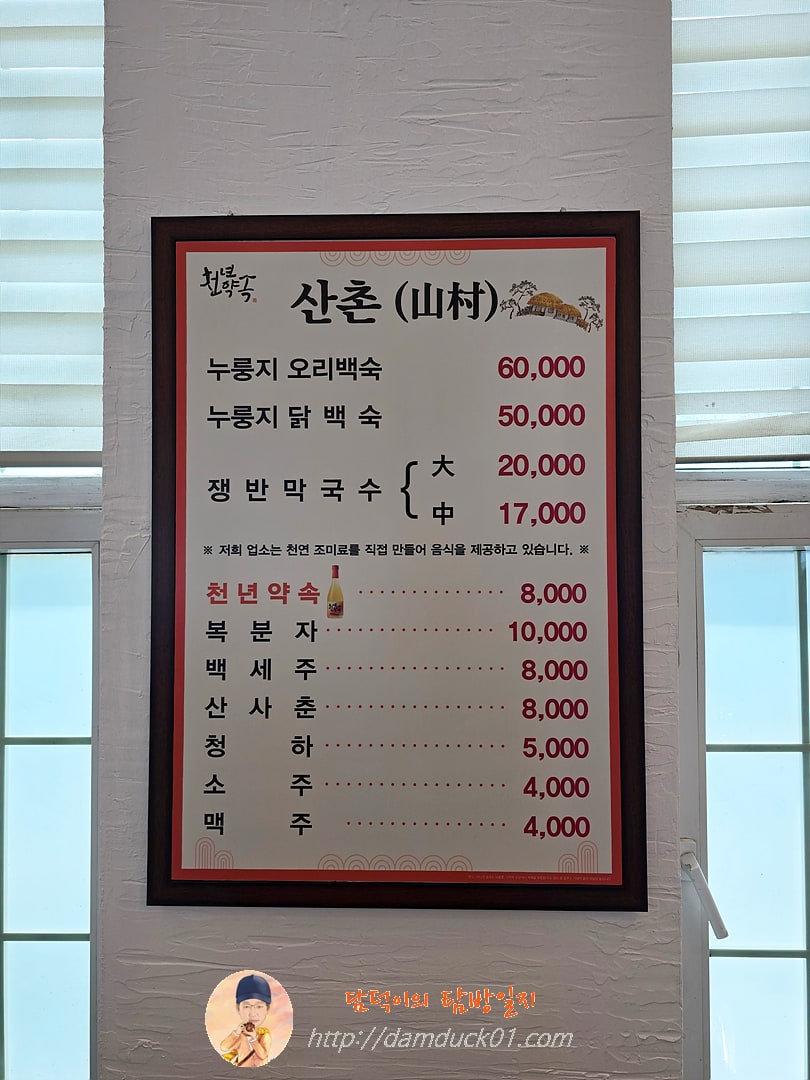 천년약속
산촌 (山村)
누룽지 오리백숙 60,000
누룽지 닭 백 숙 50,000
쟁 반 막 국 수 { 大 20,000
中 17,000
※ 저희 업소는 천연 조미료를 직접 만들어 음식을 제공하고 있습니다. ※
천 년 약 속 8,000
복 분 자 10,000
백 세 주 8,000
산 사 춘 8,000
청 하 5,000
소 주 4,000
맥 주 4,000
담덕이의 탐방일지
http://damduck01.com